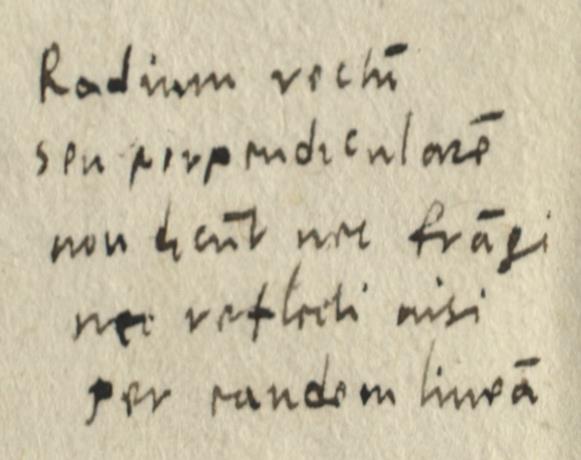 Radium rectū
seu perpendicularē
non dicūt nec frāgi
nec reflecti nisi
per eandem lineā